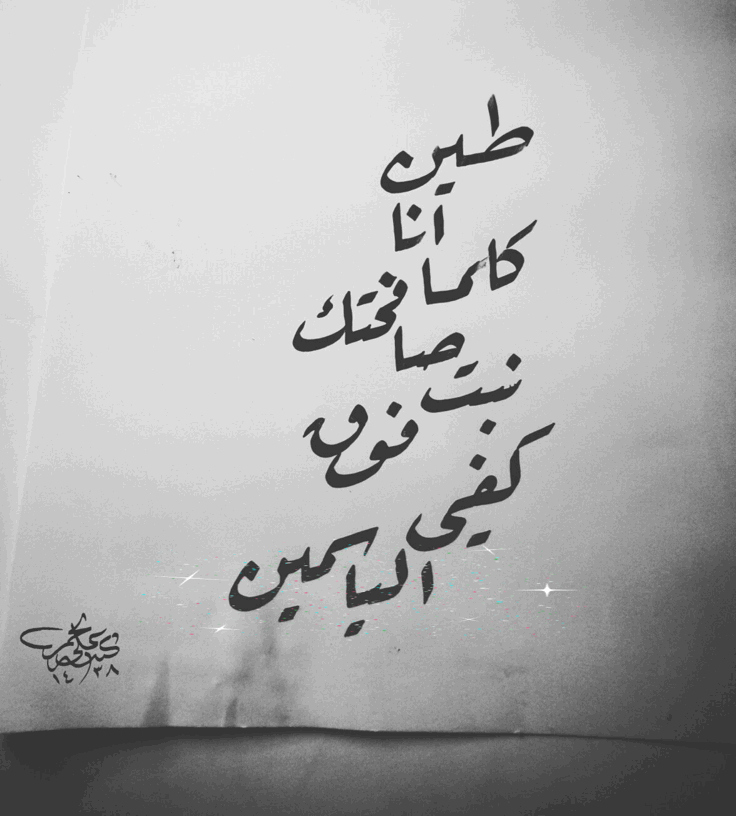 طين
أنا
كلما
صافحتك
نبت فوق
كفي
الياسمين
١٤٣٨